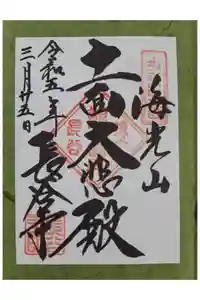 海光山
十一面大悲殿
令和五年
長谷寺
三月廿五日